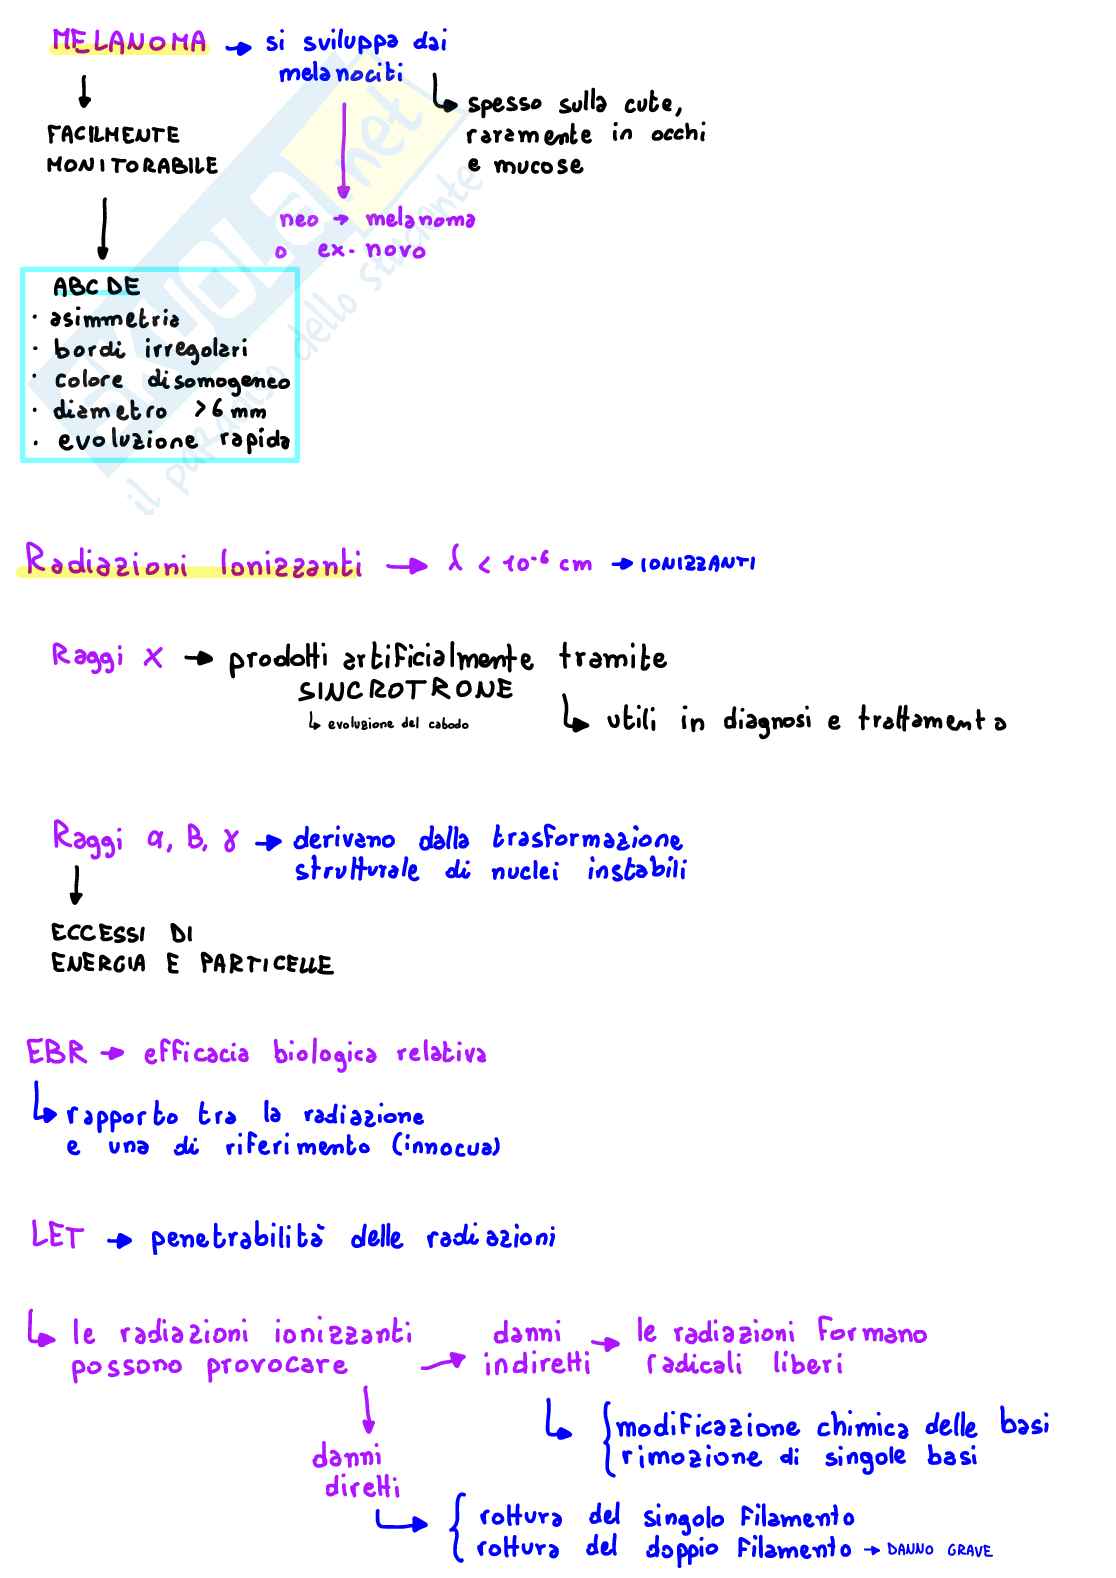 MELANOMA → si sviluppa dai
melanociti
spesso sulla cute,
raramente in occhi
e mucose
FACILMENTE
MONITORABILE
neo → melanoma
o ex-novo
ABCDE
· asimmetria
· bordi irregolari
· colore disomogeneo
· diametro >6 mm
· evoluzione rapida
SKUOLA.net
il paradiso dello studente
Radiazioni Ionizzanti → λ < 10⁻⁶ cm → IONIZZANTI
Raggi X → prodotti artificialmente tramite
SINCROTRONE
↳ evoluzione del cabodo
↳ utili in diagnosi e trattamento
Raggi α, B, γ → derivano dalla trasformazione
strutturale di nuclei instabili
ECCESSI DI
ENERGIA E PARTICELLE
EBR → efficacia biologica relativa
↳ rapporto tra la radiazione
e una di riferimento (innocua)
LET → penetrabilità delle radiazioni
↳ le radiazioni ionizzanti
possono provocare
→ danni
indiretti
→ le radiazioni formano
radicali liberi
↳ { modificazione chimica delle basi
rimozione di singole basi
danni
diretti
→ { rottura del singolo filamento
rottura del doppio filamento → DANNO GRAVE